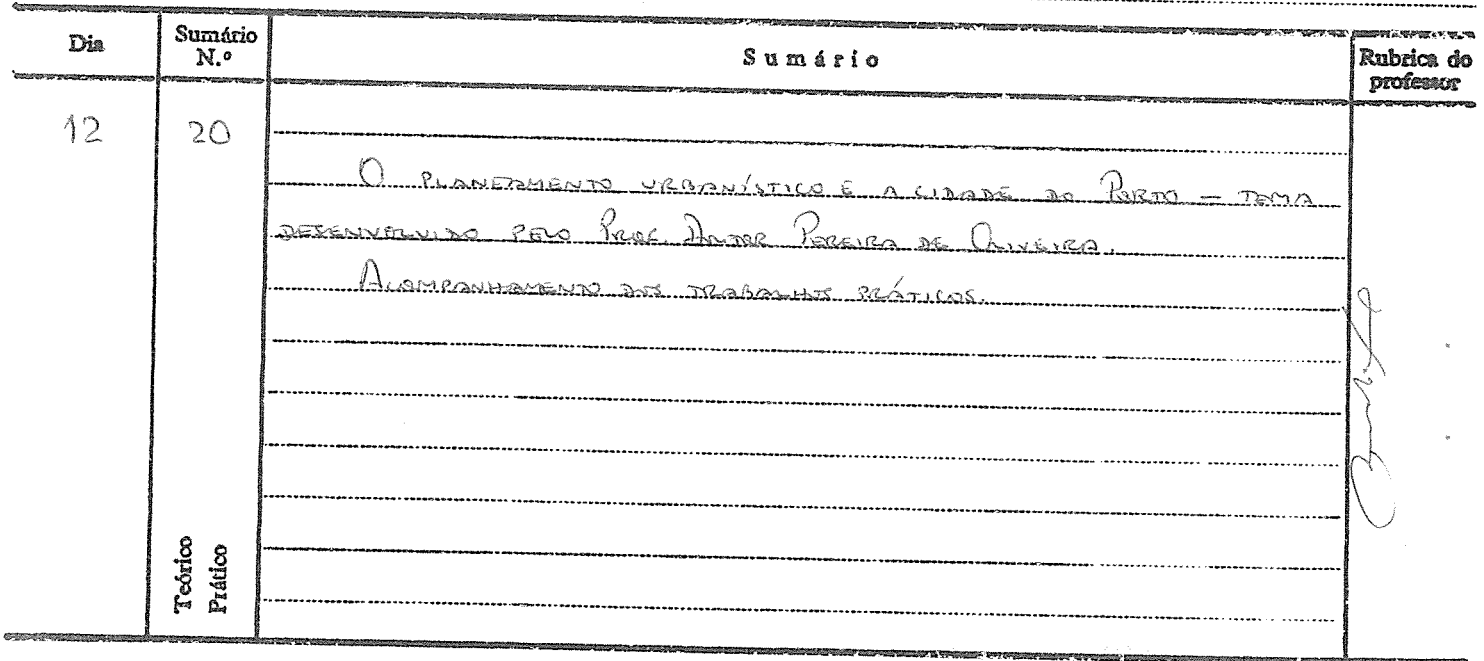 Dia
Sumário
N.º
Sumário
Rubrica do
professor
12
20
O PLANEAMENTO URBANÍSTICO E A CIDADE DO PORTO – TEMA
DESENVOLVIDO PELO PROF. PEREIRA DE OLIVEIRA.
ACOMPANHAMENTO DOS TRABALHOS PRÁTICOS.
Teórico
Prático